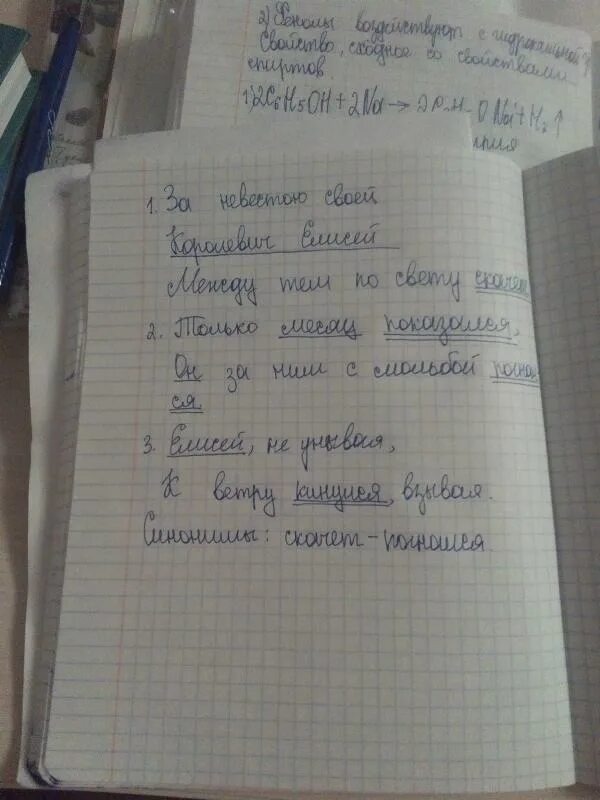 2) Фенолы воздействуют с
Свойство, сходное со свойствами
спиртов
1) 2C₆H₅OH + 2Na → 2 ONa + H₂ ↑
1. За невестою своей
Королевич Елисей
Между тем по свету скачет
2. Только месяц показался,
Он за ним с мольбой погнал
ся
3. Елисей, не унывая,
К ветру кинулся, взывая.
Синонимы: скачет – погнался